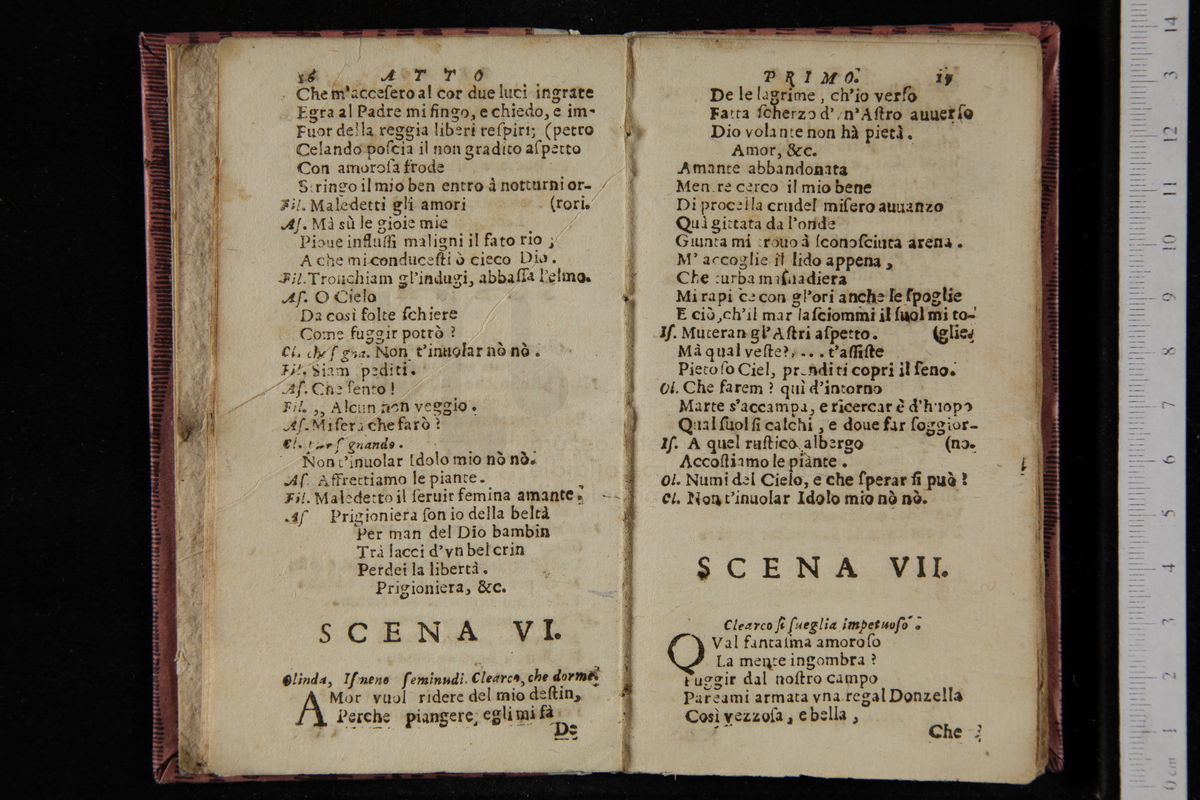 16 ATTO
Che m'acceſero al cor due luci ingrate
Egra al Padre mi fingo, e chiedo, e im-
Fuor della reggia liberi reſpiri; (petro
Celando poſcia il non gradito aſpetto
Con amoroſa frode
Stringo il mio ben entro à notturni or-
Fil. Maledetti gli amori (rori.
Aſ. Mà sù le gioie mie
Pioue influſſi maligni il fato rio ;
A che mi conduceſti ò cieco Dio.
Fil. Tronchiam gl'indugi, abbaſſa l'elmo.
Aſ. O Cielo
Da così folte ſchiere
Come fuggir potrò ?
Cl. che ſogna. Non t'inuolar nò nò.
Fil. Siam pediti.
Aſ. Che ſento !
Fil. ,, Alcun non veggio.
Aſ. Miſera che farò ?
Cl. pur ſognando.
Non t'inuolar Idolo mio nò nò.
Aſ. Affrettiamo le piante.
Fil. Maledetto il ſeruir femina amante.
Aſ Prigioniera ſon io della beltà
Per man del Dio bambin
Trà lacci d'vn bel crin
Perdei la libertà.
Prigioniera, &c.
SCENA VI.
Olinda, Iſneno ſeminudi. Clearco, che dorme.
AMor vuol ridere del mio deſtin,
Perche piangere egli mi fà
De
PRIMO. 17
De le lagrime, ch'io verſo
Fatta ſcherzo d'vn'Aſtro auuerſo
Dio volante non hà pietà.
Amor, &c.
Amante abbandonata
Mentre cerco il mio bene
Di procella crudel miſero auuanzo
Quà gittata da l'onde
Giunta mi trouo à ſconoſciuta arena.
M'accoglie il lido appena,
Che turba maſnadiera
Mi rapiſce con gl'ori anche le ſpoglie
E ciò, ch'il mar laſciommi il ſuol mi to-
Iſ. Muteran gl'Aſtri aſpetto. (glie.
Mà qual veſte?.... t'aſſiſte
Pietoſo Ciel, prendi ti copri il ſeno.
Ol. Che farem ? quì d'intorno
Marte s'accampa, e ricercar è d'huopo
Qual ſuol ſi calchi, e doue far ſoggior-
Iſ. A quel ruſtico albergo (no.
Accoſtiamo le piante.
Ol. Numi del Cielo, e che ſperar ſi può ?
Cl. Non t'inuolar Idolo mio nò nò.
SCENA VII.
Clearco ſi ſueglia impetuoſo.
QVal fantaſma amoroſo
La mente ingombra ?
Fuggir dal noſtro campo
Pareami armata vna regal Donzella
Così vezzoſa, e bella,
Che
0 cm 1 2 3 4 5 6 7 8 9 10 11 12 3 14